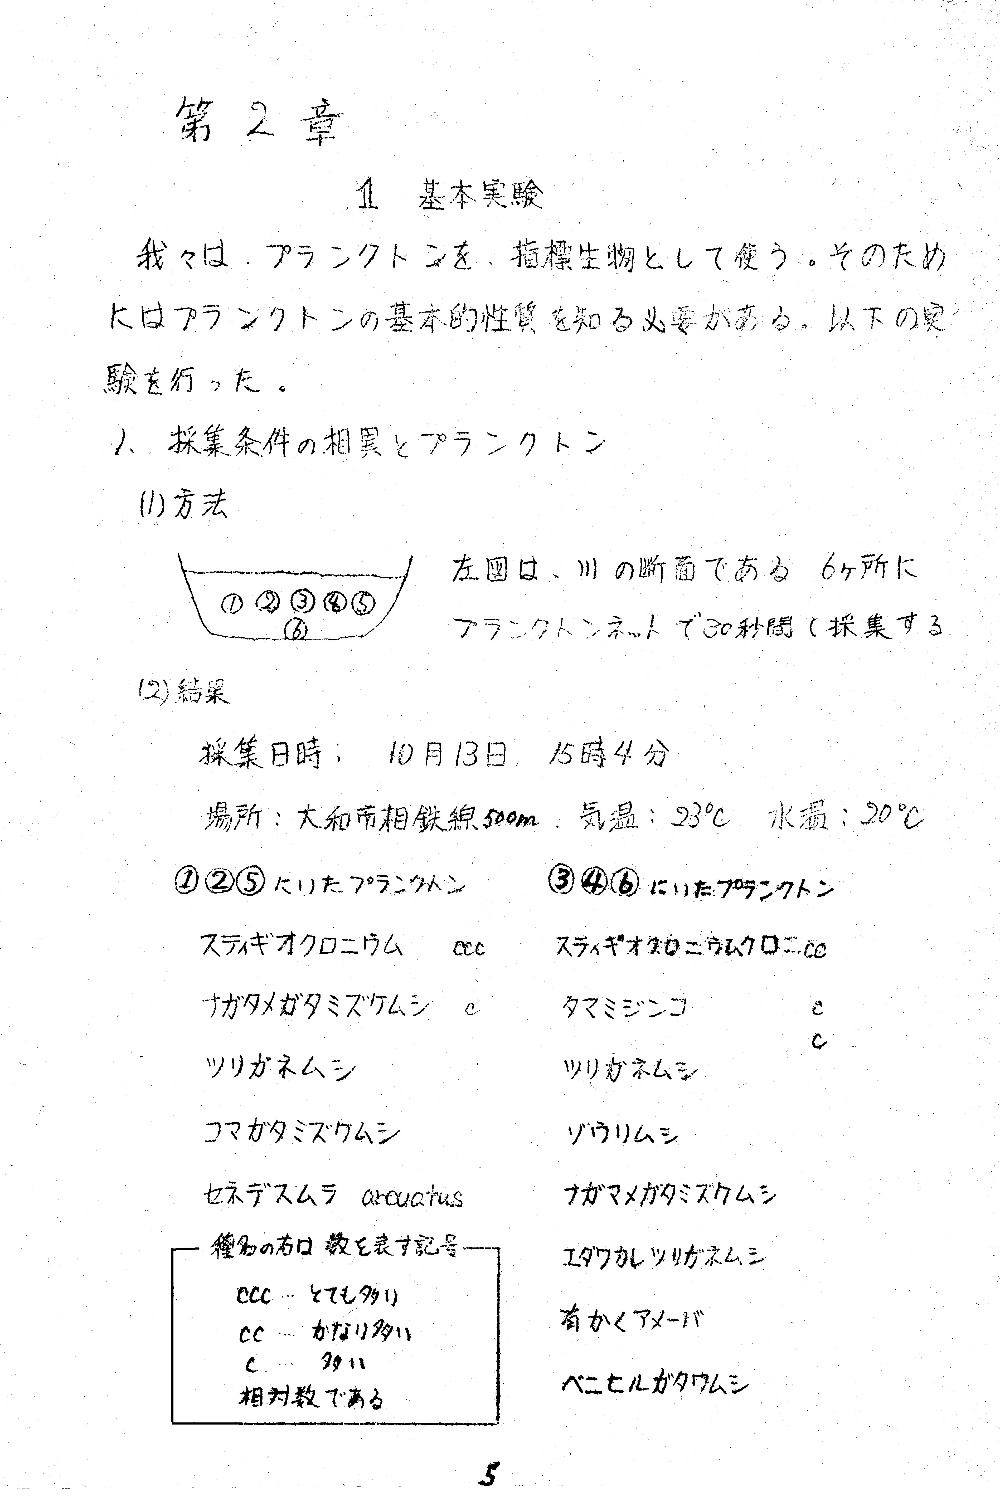 第2章
1 基本実験
我々は、プランクトンを、指標生物として使う。そのため
にはプランクトンの基本的性質を知る必要がある。以下の実
験を行った。
1、採集条件の相異とプランクトン
(1)方法
左図は、川の断面である 6ヶ所に
① ② ③ ④ ⑤
⑥
プランクトンネットで30秒間採集する
(2)結果
採集日時; 10月13日 15時4分
場所:大和市相鉄線500m. 気温:23℃ 水温:20℃
①②⑤にいたプランクトン
スティギオクロニウム ccc
ナガタメガタミズケムシ c
ツリガネムシ
コマガタミズケムシ
セネデスムラ arcuatus
種名の右は数を表す記号
ccc … とても多い
cc … かなり多い
c … 多い
相対数である
③④⑥にいたプランクトン
スティギオクロニウムクロニ cc
タマミジンコ c
c
ツリガネムシ
ゾウリムシ
ナガマメガタミズケムシ
エダワカレツリガネムシ
有かくアメーバ
ベニヒルガタワムシ
5